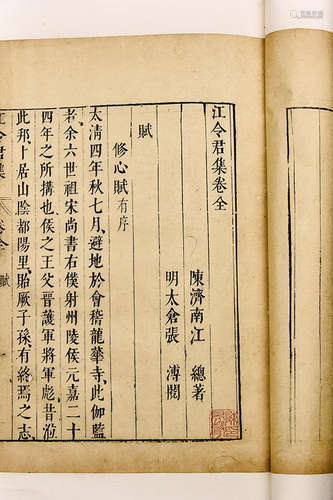 江令君集卷全
陳濟南江 總著
明太倉張 溥閱
賦
修心賦有序
太清四年秋七月避地於會稽龍華寺此伽藍
者余六世祖宋尚書右僕射州陵侯元嘉二十
四年之所搆也侯之王父晉護軍將軍彪昔涖
此邦卜居山陰都陽里貽厥子孫有終焉之志
江令君集 卷全 賦